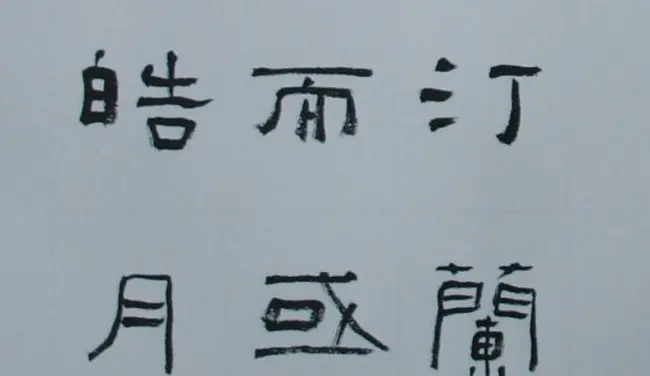 汀蘭
而或
皓月